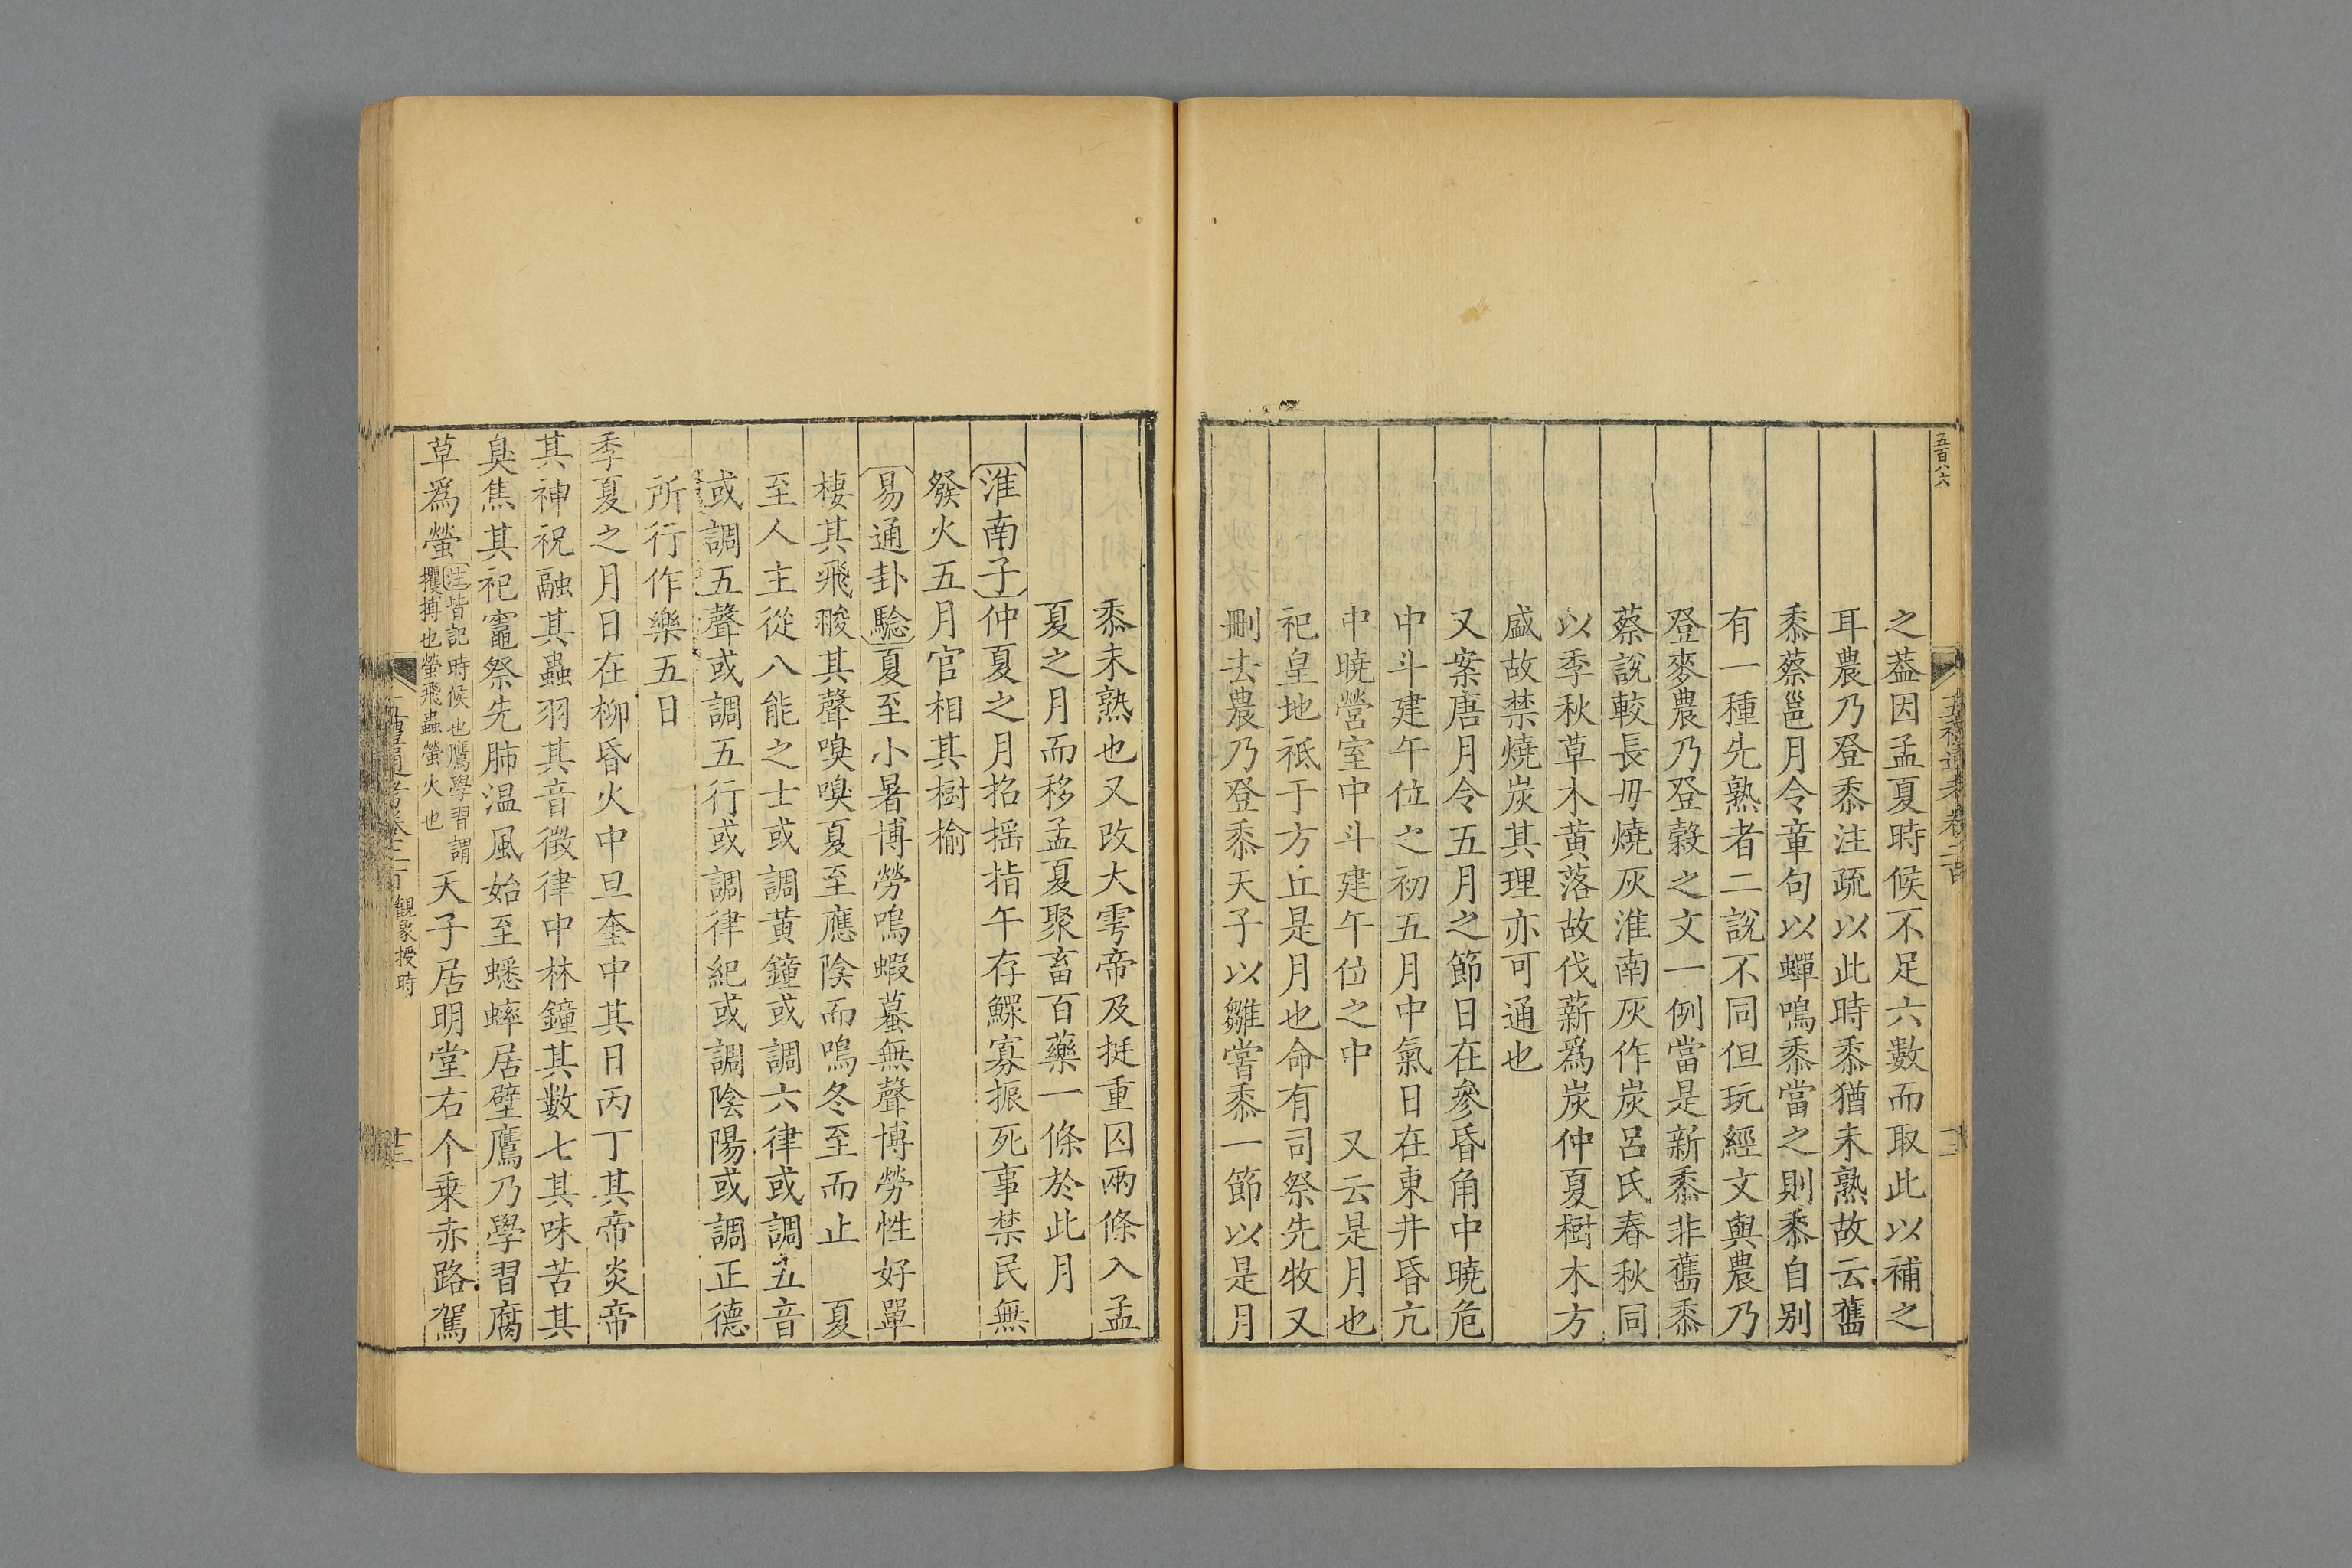 五百八六
五禮通考卷二百
之葢因孟夏時候不足六數而取此以補之
耳農乃登黍注疏以此時黍猶未熟故云舊
黍蔡邕月令章句以蟬鳴黍當之則黍自别
有一種先熟者二說不同但玩經文與農乃
登麥農乃登榖之文一例當是新黍非舊黍
蔡說較長毋燒灰淮南灰作炭呂氏春秋同
以季秋草木黃落故伐薪爲炭仲夏樹木方
盛故禁燒炭其理亦可通也
又案唐月令五月之節日在參昏角中曉危
中斗建午位之初五月中氣日在東井昏亢
中曉營室中斗建午位之中　又云是月也
祀皇地祗于方丘是月也命有司祭先牧又
刪去農乃登黍天子以雛嘗黍一節以是月
黍未熟也又改大雩帝及挺重囚兩條入孟
夏之月而移孟夏聚畜百藥一條於此月
淮南子仲夏之月招搖指午存鰥寡振死事禁民無
發火五月官相其樹榆
易通卦驗夏至小暑博勞鳴蝦蟇無聲博勞性好單
棲其飛翪其聲嗅嗅夏至應陰而鳴冬至而止　夏
至人主從八能之士或調黃鐘或調六律或調五音
或調五聲或調五行或調律紀或調陰陽或調正德
所行作樂五日
季夏之月日在柳昏火中旦奎中其日丙丁其帝炎帝
其神祝融其蟲羽其音徵律中林鐘其數七其味苦其
臭焦其祀竈祭先肺温風始至蟋蟀居壁鷹乃學習腐
草爲螢注皆記時候也鷹學習謂攫搏也螢飛蟲螢火也天子居明堂右个乗赤路駕
五禮通考卷二百　觀象授時　十三